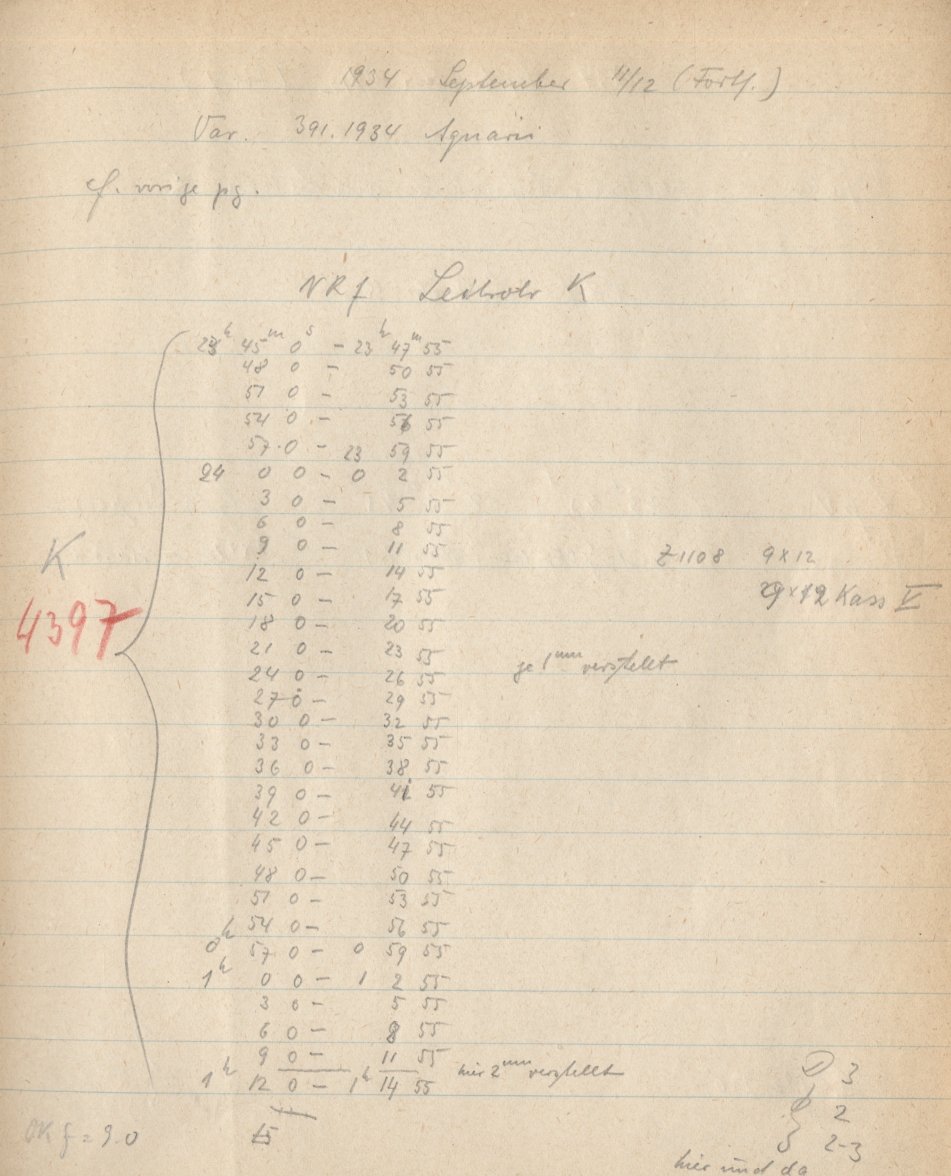 1934 September 11/12 (Fortf.)
Var. 391.1934 Aquarii
cf. vorige pg.
NRf Leitrohr K
23h 45m 0s - 23h 47m 55
48 0 - 50 55
51 0 - 53 55
54 0 - 56 55
57 0 - 23 59 55
24 0 0 - 0 2 55
3 0 - 5 55
6 0 - 8 55
9 0 - 11 55
K
Z1108 9x12
12 0 - 14 55
9x12 Kass V
15 0 - 17 55
4397
18 0 - 20 55
21 0 - 23 55
je 1mm verstellt
24 0 - 26 55
27 0 - 29 55
30 0 - 32 55
33 0 - 35 55
36 0 - 38 55
39 0 - 41 55
42 0 - 44 55
45 0 - 47 55
48 0 - 50 55
51 0 - 53 55
54 0 - 56 55
0h 57 0 - 0 59 55
1h 0 0 - 1 2 55
3 0 - 5 55
6 0 - 8 55
9 0 - 11 55
hier 2mm verstellt
1h 12 0 - 1h 14 55
3
2
15
2-3
hier und da